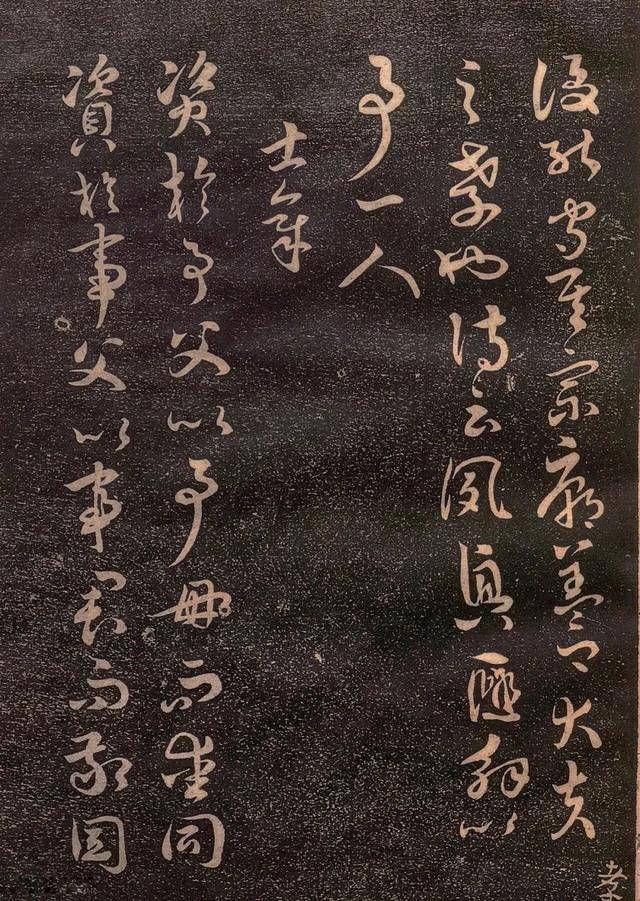 後能守其宗廟蓋卿大夫
之孝也詩云夙夜匪解以
事一人
士章
資於事父以事母而愛同
資於事父以事君而敬同